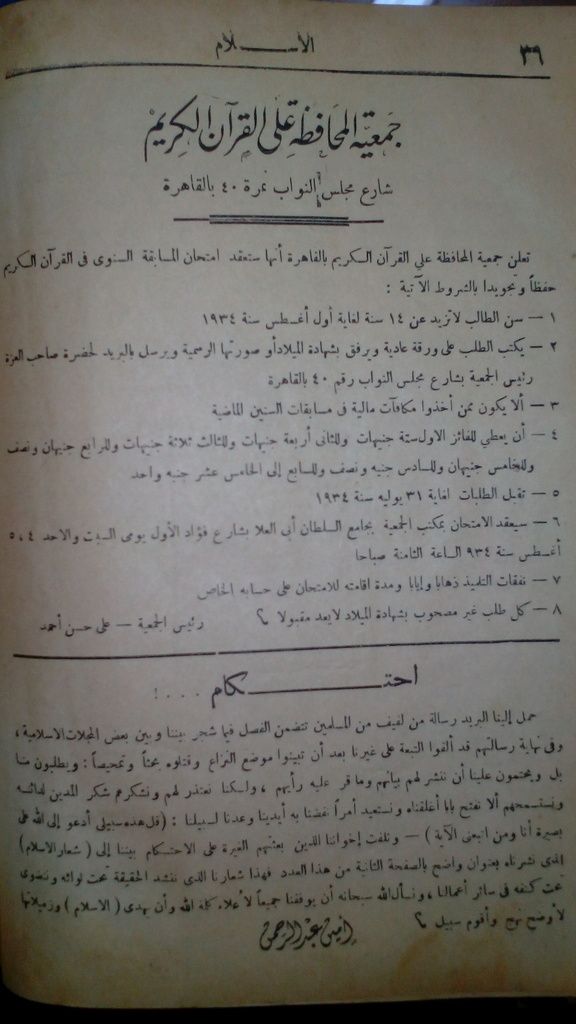 ٣٩
الاســـلام
جمعية المحافظة على القرآن الكريم
شارع مجلس النواب نمرة ٤٠ بالقاهرة
تعلن جمعية المحافظة على القرآن الكريم بالقاهرة أنها ستعقد امتحان المسابقة السنوى فى القرآن الكريم
حفظاً وتجويدا بالشروط الآتية :
١ — سن الطالب لاتزيد عن ١٤ سنة لغاية أول أغسطس سنة ١٩٣٤
٢ — يكتب الطلب على ورقة عادية ويرفق بشهادة الميلاد أو صورتها الرسمية ويرسل بالبريد لحضرة صاحب العزة
رئيس الجمعية بشارع مجلس النواب رقم ٤٠ بالقاهرة
٣ — ألا يكون ممن أخذوا مكافآت مالية فى مسابقات السنين الماضية
٤ — أن يعطى للفائز الاول ستة جنيهات وللثانى أربعة جنيهات وللثالث ثلاثة جنيهات وللرابع جنيهان ونصف
وللخامس جنيهان وللسادس جنيه ونصف وللسابع إلى الخامس عشر جنيه واحد
٥ — تقبل الطلبات لغاية ٣١ يوليه سنة ١٩٣٤
٦ — سيعقد الامتحان بمكتب الجمعية بجامع السلطان أبى العلا بشارع فؤاد الأول يومى السبت والاحد ٤ ، ٥
أغسطس سنة ٩٣٤ الساعة الثامنة صباحا
٧ — نفقات التلميذ ذهابا وإيابا ومدة اقامته للامتحان على حسابه الخاص
٨ — كل طلب غير مصحوب بشهادة الميلاد لايعد مقبولا رئيس الجمعية — على حسن أحمد
احتـــكام . . . !
حمل إلينا البريد رسالة من لفيف من المسلمين تتضمن الفصل فيما شجر بيننا وبين بعض المجلات الاسلامية ،
وفى نهاية رسالتهم قد ألقوا التبعة على غيرنا بعد أن تبينوا موضع النزاع وقتلوه بحثاً وتمحيصاً : ويطلبون منا
بل ويحتمون علينا أن ننشر لهم بيانهم وما قر عليه رأيهم ، ولكنا نعتذر لهم ونشكرهم شكر المدين لدائنه
ونستسمحهم ألا نفتح بابا أغلقناه ونستعيد أمراً نفضنا به أيدينا وعدنا لسبيلنا : (قل هذه سبيلى أدعو إلى الله على
بصيرة أنا ومن اتبعنى الآية ) — ونلفت إخواننا الذين بعثتهم الغيرة على الاحتكام بيننا إلى ( شعار الاسلام )
الذى نشرناه بعنوان واضح بالصفحة الثانية من هذا العدد فهذا شعارنا الذى ننشد الحقيقة تحت لوائه وننضوى
تحت كنفه فى سائر أعمالنا ، ونسأل الله سبحانه أن يوفقنا جميعاً لأعلاء كلمة الله وأن يهدى ( الاسلام ) وزميلاتها
لأوضح نهج وأقوم سبيل
أمين عبد الرحمن